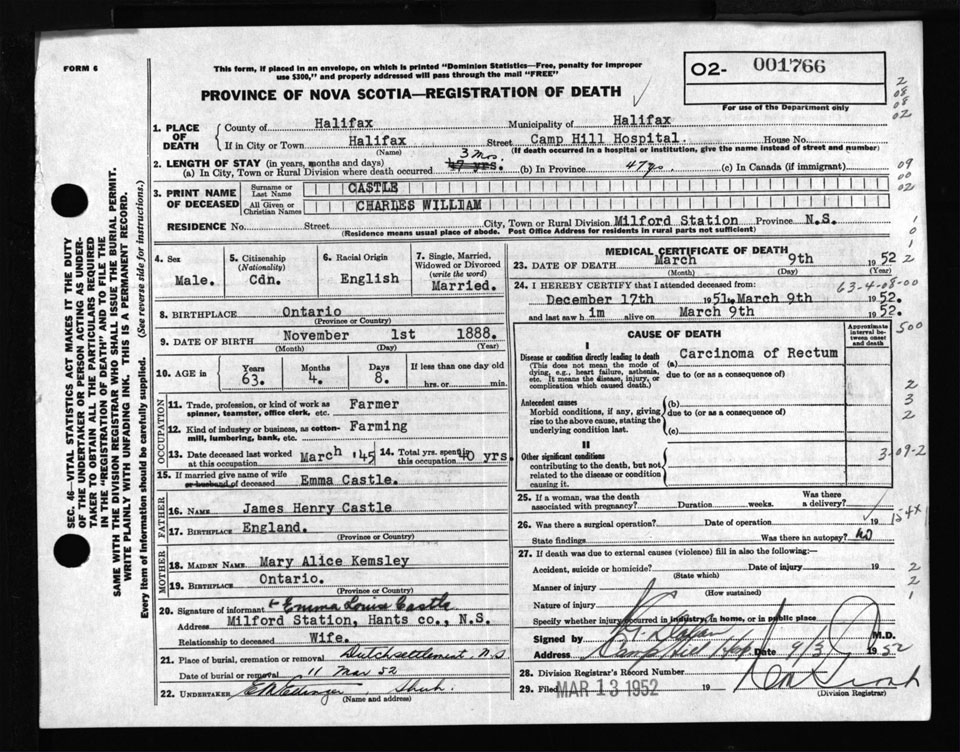 FORM 6
This form, if placed in an envelope, on which is printed "Dominion Statistics—Free, penalty for improper
use $300," and properly addressed will pass through the mail "FREE"
PROVINCE OF NOVA SCOTIA—REGISTRATION OF DEATH
O2- 001766
For use of the Department only
1. PLACE OF DEATH
County of Halifax Municipality of Halifax
If in City or Town Halifax Street Camp Hill Hospital. House No.
(Name) (If death occurred in a hospital or institution, give the name instead of street and number)
2. LENGTH OF STAY (in years, months and days)
(a) In City, Town or Rural Division where death occurred 47 yrs. 3 Mos. (b) In Province 47 yrs (c) In Canada (if immigrant)
3. PRINT NAME OF DECEASED
Surname or Last Name CASTLE
All Given or Christian Names CHARLES WILLIAM
RESIDENCE No. Street City, Town or Rural Division Milford Station Province N.S.
(Residence means usual place of abode. Post Office Address for residents in rural parts not sufficient)
SEC. 46—VITAL STATISTICS ACT MAKES IT THE DUTY
OF THE UNDERTAKER OR PERSON ACTING AS UNDER-
TAKER TO OBTAIN ALL THE PARTICULARS REQUIRED
IN THE "REGISTRATION OF DEATH" AND TO FILE THE
SAME WITH THE DIVISION REGISTRAR WHO SHALL ISSUE THE BURIAL PERMIT.
WRITE PLAINLY WITH UNFADING INK. THIS IS A PERMANENT RECORD.
Every item of information should be carefully supplied. (See reverse side for instructions.)
4. Sex Male.
5. Citizenship (Nationality) Cdn.
6. Racial Origin English
7. Single, Married, Widowed or Divorced (write the word) Married.
8. BIRTHPLACE Ontario
(Province or Country)
9. DATE OF BIRTH November 1st 1888.
(Month) (Day) (Year)
10. AGE in Years 63. Months 4. Days 8. If less than one day old hrs. or min.
OCCUPATION
11. Trade, profession, or kind of work as spinner, teamster, office clerk, etc. Farmer
12. Kind of industry or business, as cotton-mill, lumbering, bank, etc. Farming
13. Date deceased last worked at this occupation March '45
14. Total yrs. spent in this occupation 40 yrs.
15. If married give name of wife or husband of deceased Emma Castle.
FATHER
16. Name James Henry Castle
17. Birthplace England.
(Province or Country)
MOTHER
18. MAIDEN NAME Mary Alice Kemsley
19. Birthplace Ontario.
(Province or Country)
20. Signature of informant Emma Louise Castle
Address Milford Station, Hants co., N.S.
Relationship to deceased Wife.
21. Place of burial, cremation or removal Dutch settlement, N.S
Date of burial or removal 11 Mar 52
22. UNDERTAKER
(Name and address)
MEDICAL CERTIFICATE OF DEATH
23. DATE OF DEATH March 9th 1952
(Month) (Day) (Year)
24. I HEREBY CERTIFY that I attended deceased from:
63-4-08-00
December 17th 1951. March 9th 1952.
and last saw him alive on March 9th 1952.
CAUSE OF DEATH
Approximate interval between onset and death
I
Disease or condition directly leading to death
(This does not mean the mode of dying, e.g., heart failure, asthenia, etc. It means the disease, injury, or complication which caused death.)
(a) Carcinoma of Rectum
due to (or as consequence of)
Antecedent causes
Morbid conditions, if any, giving rise to the above cause, stating the underlying condition last.
(b)
due to (or as a consequence of)
(c)
II
Other significant conditions
contributing to the death, but not related to the disease or condition causing it.
25. If a woman, was the death associated with pregnancy? Duration weeks. Was there a delivery?
26. Was there a surgical operation? Date of operation 19
State findings Was there an autopsy? No
27. If death was due to external causes (violence) fill in also the following:—
Accident, suicide or homicide? Date of injury 19
(State which)
Manner of injury
(How sustained)
Nature of injury
Specify whether injury occurred in industry, in home, or in public place
Signed by M.D.
Address Camp Hill Hosp Date 9/3 1952
28. Division Registrar's Record Number
29. Filed MAR 13 1952 19
(Division Registrar)